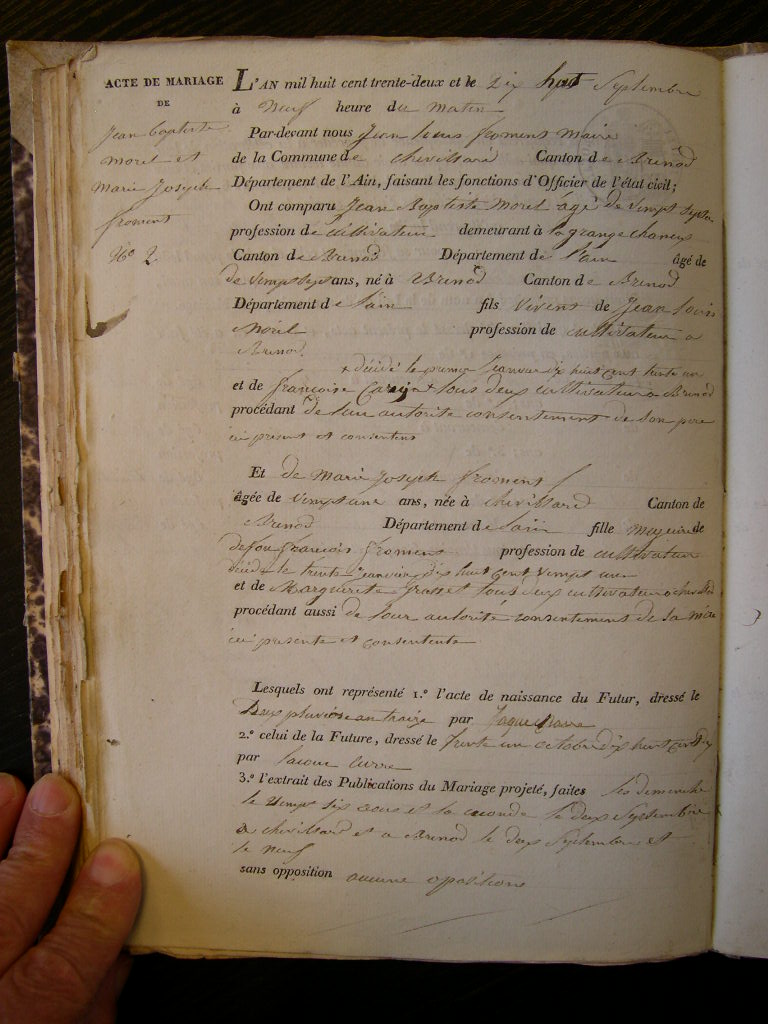 ACTE DE MARIAGE
DE
Jean Baptiste
Morel et
Marie Joseph
froment
No 2
L'AN mil huit cent trente-deux et le Dix huit Septembre
à Neuf heure du Matin
Par-devant nous Jean louis froment Maire
de la Commune de Chevillard Canton de Brenod
Département de l'Ain, faisant les fonctions d'Officier de l'état civil;
Ont comparu Jean Baptiste Morel agé de vingt septs
profession de Cultivateur demeurant à la grange
Canton de Brenod Département de l'ain âgé de
de vingt sept ans, né à Brenod Canton de Brenod
Département de lain fils vivent de Jean louis
Morel profession de cultivateur a
Brenod
+ décidé le premier Janvier dix huit cent trente un
et de françoise + tous deux cultivateur a Brenod
procédant de sau autorite consentement de son pere
ici present et consentens
Et de Marie Joseph froment
âgée de vingt une ans, née à chevillard Canton de
Brenod Département de lain fille Majeure de
de fou francois froment profession de cultivateur
décide le trente Janvier dix huit cent vingt une
et de Marguerite tous deux cultivateur a chevillard
procédant aussi de sour autorité consentement de sa mère
ici presente et consentente
Lesquels ont représenté 1.º l'acte de naissance du Futur, dressé le
Deux pluviose an traize par Jaque
2.º celui de la Future, dressé le trente un octobre dix huit cent dix
par
3.º l'extrait des Publications du Mariage projeté, faites les dimanche
le vingt six aous et la seconde le deux Septembre
a chevillard et a Brenod le deux Septembre et
le neuf
sans opposition aucune opositions